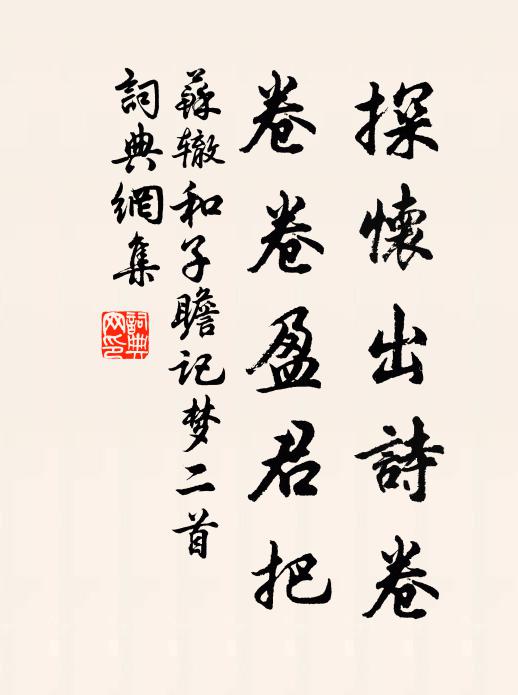 探懷出詩卷
卷卷盈君把
蘇辙和子瞻记梦二首
詞典網集
詞典
网印